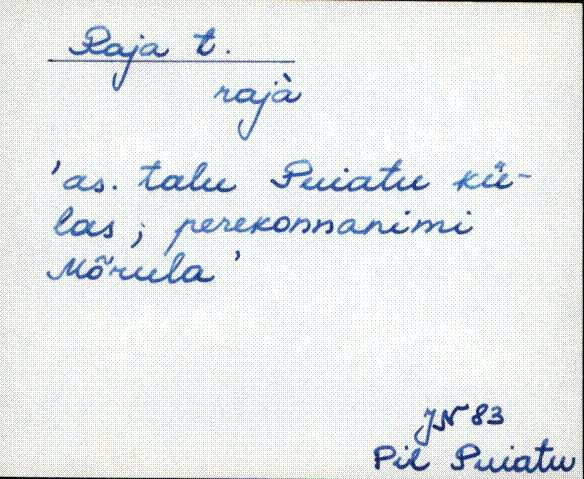 Raja t.
rajà
'as. talu Puiatu kü-
las; perekonnanimi
Mõrula'
JN 83
Pil Puiatu